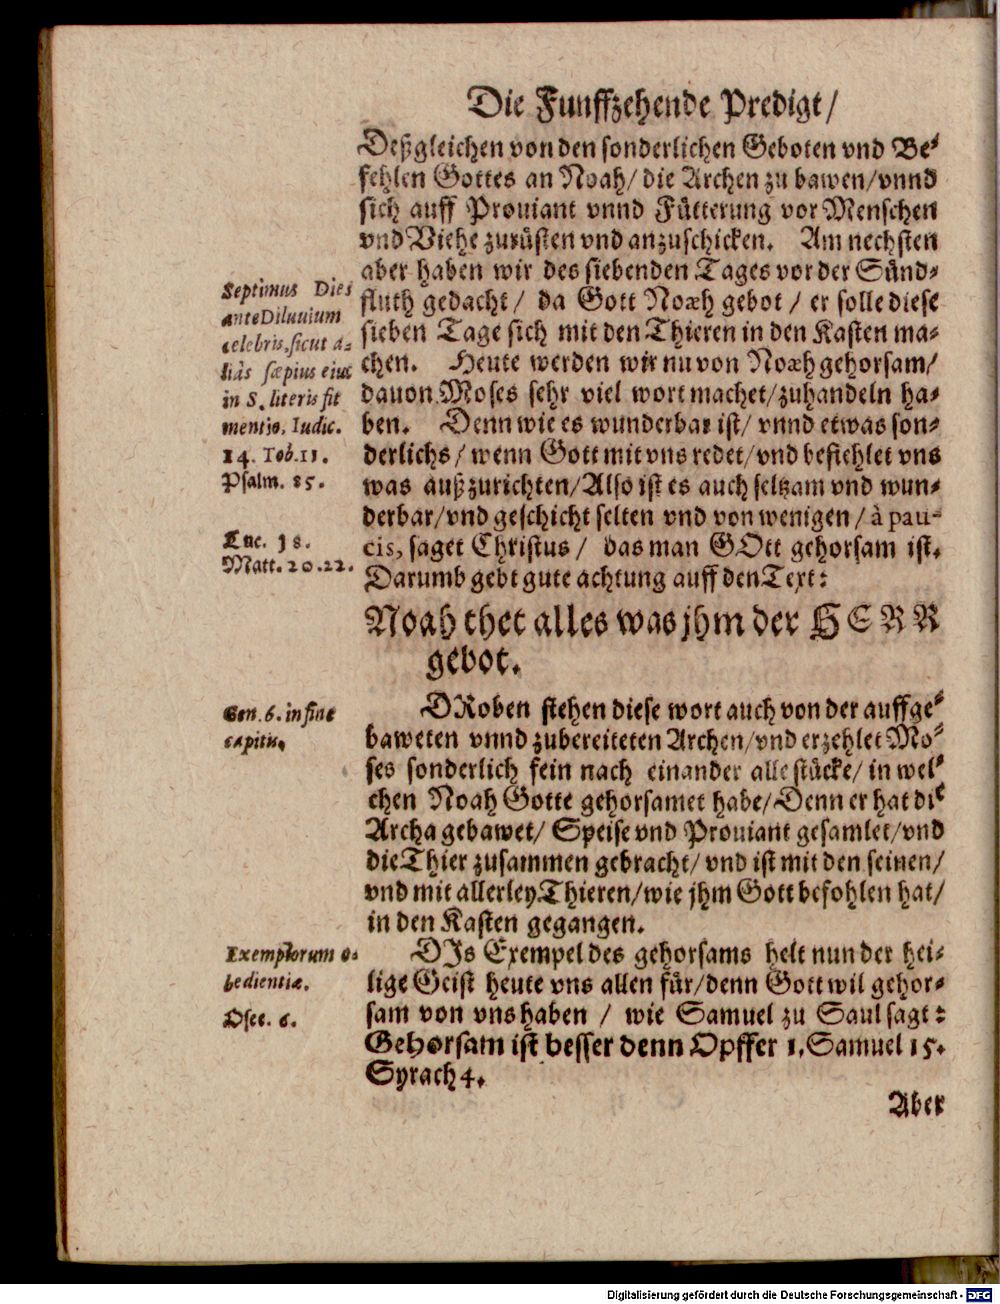 Die Funffzehende Predigt/
Deßgleichen von den sonderlichen Geboten vnd Be-
fehlen Gottes an Noah/ die Archen zu bawen/ vnnd
sich auff Prouiant vnnd Fütterung vor Menschen
vnd Viehe zurüsten vnd anzuschicken. Am nechsten
aber haben wir des siebenden Tages vor der Sünd-
fluth gedacht/ da Gott Noæh gebot / er solle diese
sieben Tage sich mit den Thieren in den Kasten ma-
chen. Heute werden wir nu von Noæh gehorsam/
dauon Moses sehr viel wort machet/ zuhandeln ha-
ben. Denn wie es wunderbar ist/ vnnd etwas son-
derlichs/ wenn Gott mit vns redet/ vnd befiehlet vns
was außzurichten/ Also ist es auch seltzam vnd wun-
derbar/ vnd geschicht selten vnd von wenigen/ à pau-
cis, saget Christus/ das man GOtt gehorsam ist.
Darumb gebt gute achtung auff den Text:
Septimus Dies
ante Diluuium
celebris, sicut a-
liàs sæpius eius
in S. literis fit
mentio, Iudic.
14. Tob. 11.
Psalm. 85.
Luc. 18.
Matt. 20. 22.
Noah thet alles was jhm der HERR
gebot.
DRoben stehen diese wort auch von der auffge-
baweten vnnd zubereiteten Archen/ vnd erzehlet Mo-
ses sonderlich fein nach einander alle stücke/ in wel-
chen Noah Gotte gehorsamet habe/ Denn er hat die
Archa gebawet/ Speise vnd Prouiant gesamlet/ vnd
die Thier zusammen gebracht/ vnd ist mit den seinen/
vnd mit allerley Thieren/ wie jhm Gott befohlen hat/
in den Kasten gegangen.
Gen. 6. in fine
capitis.
DIs Exempel des gehorsams helt nun der hei-
lige Geist heute vns allen für/ denn Gott wil gehor-
sam von vns haben / wie Samuel zu Saul sagt:
Gehorsam ist besser denn Opffer 1. Samuel 15.
Syrach 4.
Exemplorum o-
bedientiæ.
Osee. 6.
Aber
Digitalisierung gefördert durch die Deutsche Forschungsgemeinschaft - DFG